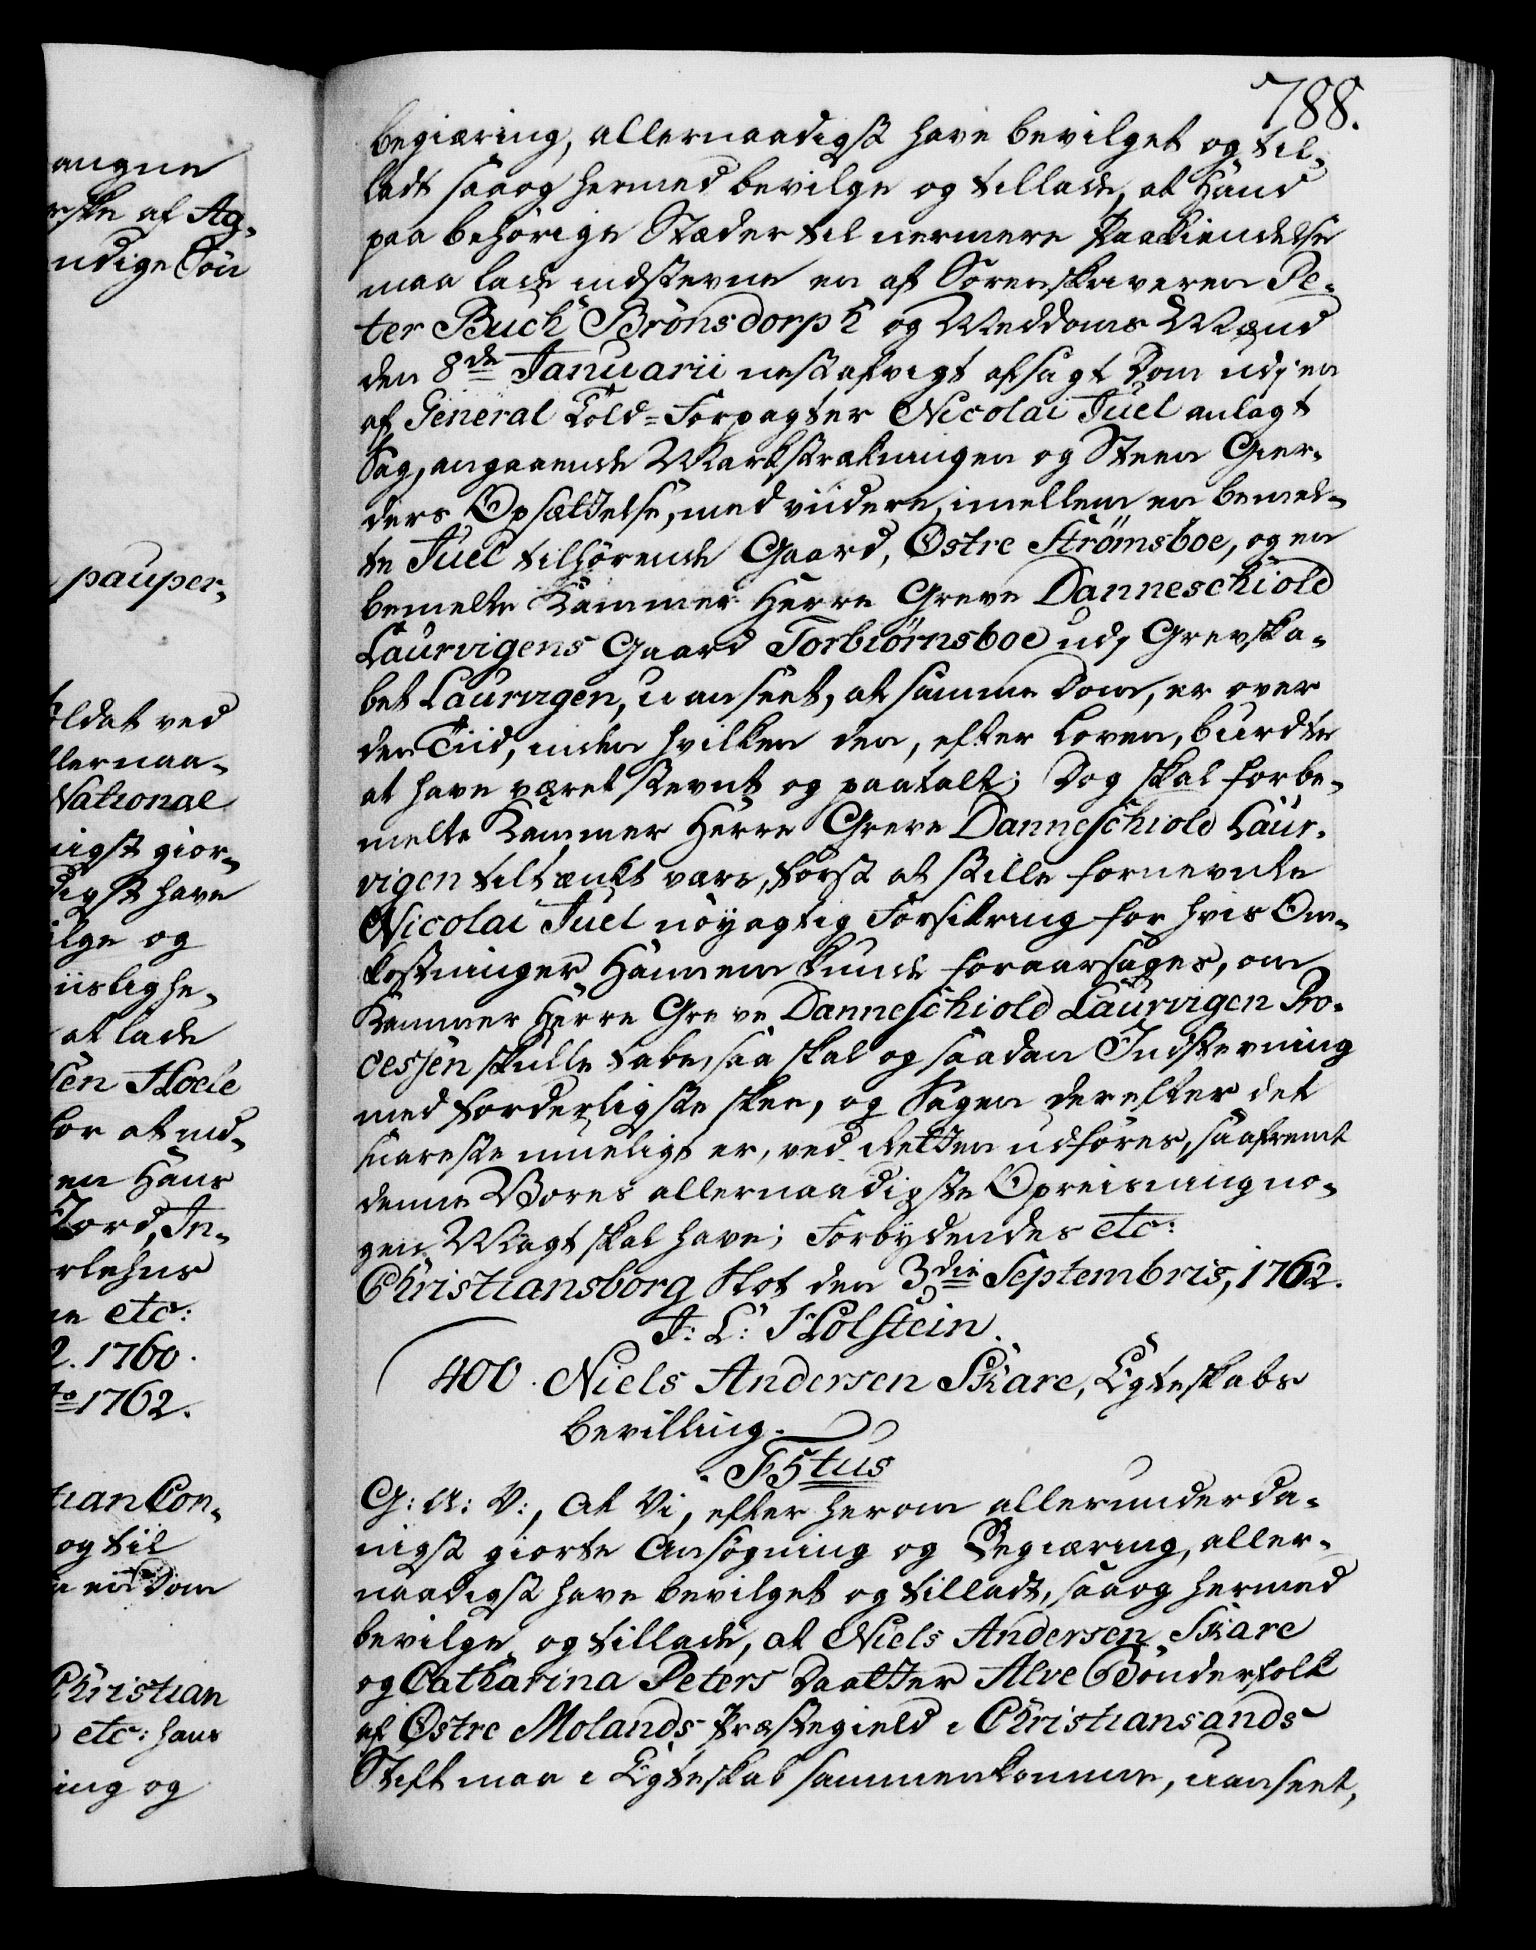 788.
begiæring, allernaadigst have bevilget og til-
ladt saaog hermed bevilge og tillade, at Hand
paa behørige Stæder til nermere Paakiendelse
maa lade indstevne en af Sorenskriveren Pe-
ter Buch Brönsdorph og Meddoms Mænd
den 8de Januarii nestafvigt afsagt Dom udj en
af General Told-Forpagter Nicolai Juel anlagt
Sag, angaaende Markstrækningen og Steen Gier-
ders Opsættelse, med viidere, imellem en bemel-
te Juel tilhørende Gaard, Østre Strömsboe, og en
bemelte Kammer Herre Greve Danneschiold
Laurvigens Gaard Torbiörnsboe udj Grevska-
bet Laurvigen, uanseet, at samme Dom, er over
den Tiid, inden hvilken den, efter Loven, burdte
at have været stevnt og paatalt; Dog skal forbe-
melte Kammer Herre Greve Danneschiold Laur-
vigen tiltænkt være, først at stille fornevnte
Nicolai Juel nöyagtig Forsikring for hvis Om-
kostninger Hannem kunde foraarsages, om
Kammer Herre Greve Danneschiold Laurvigen Pro-
cessen skulle tabe, saa skal og saadan Indstevning
med forderligste skee, og Sagen derefter det
snareste mueligt er, ved Retten udføres, saafremt
denne Vores allernaadigste Opreisning no-
gen Magt skal have; Forbydendes etc:
Christiansborg Slot den 3die Septembris, 1762.
J: L: Holstein.
400. Niels Andersen Skare, Egteskabs
bevilling.
F5tus
G: A: V:, At Vi, efter herom allerunderda-
nigst giorte Ansøgning og Begiæring, aller-
naadigst have bevilget og tilladt, saaog hermed
bevilge og tillade, at Niels Andersen Skare
og Catharina Peters Daatter Alve Bönderfolk
af Østre Molands Præstegield i Christiansands
Stift maa i Egteskab sammenkomme, uanseet,
angne
rske af Ag-
ndige Sön
pauper-
oldat ved
llernaa-
National
nigst gior-
digst have
ilge og
iislighe-
at lade
sen Hoele
for at ind-
en Hans
Fiord, In-
rlehns
ne etc:
2. 1760.
to 1762.
tian Con-
og til
Christian
etc: hans
ing og